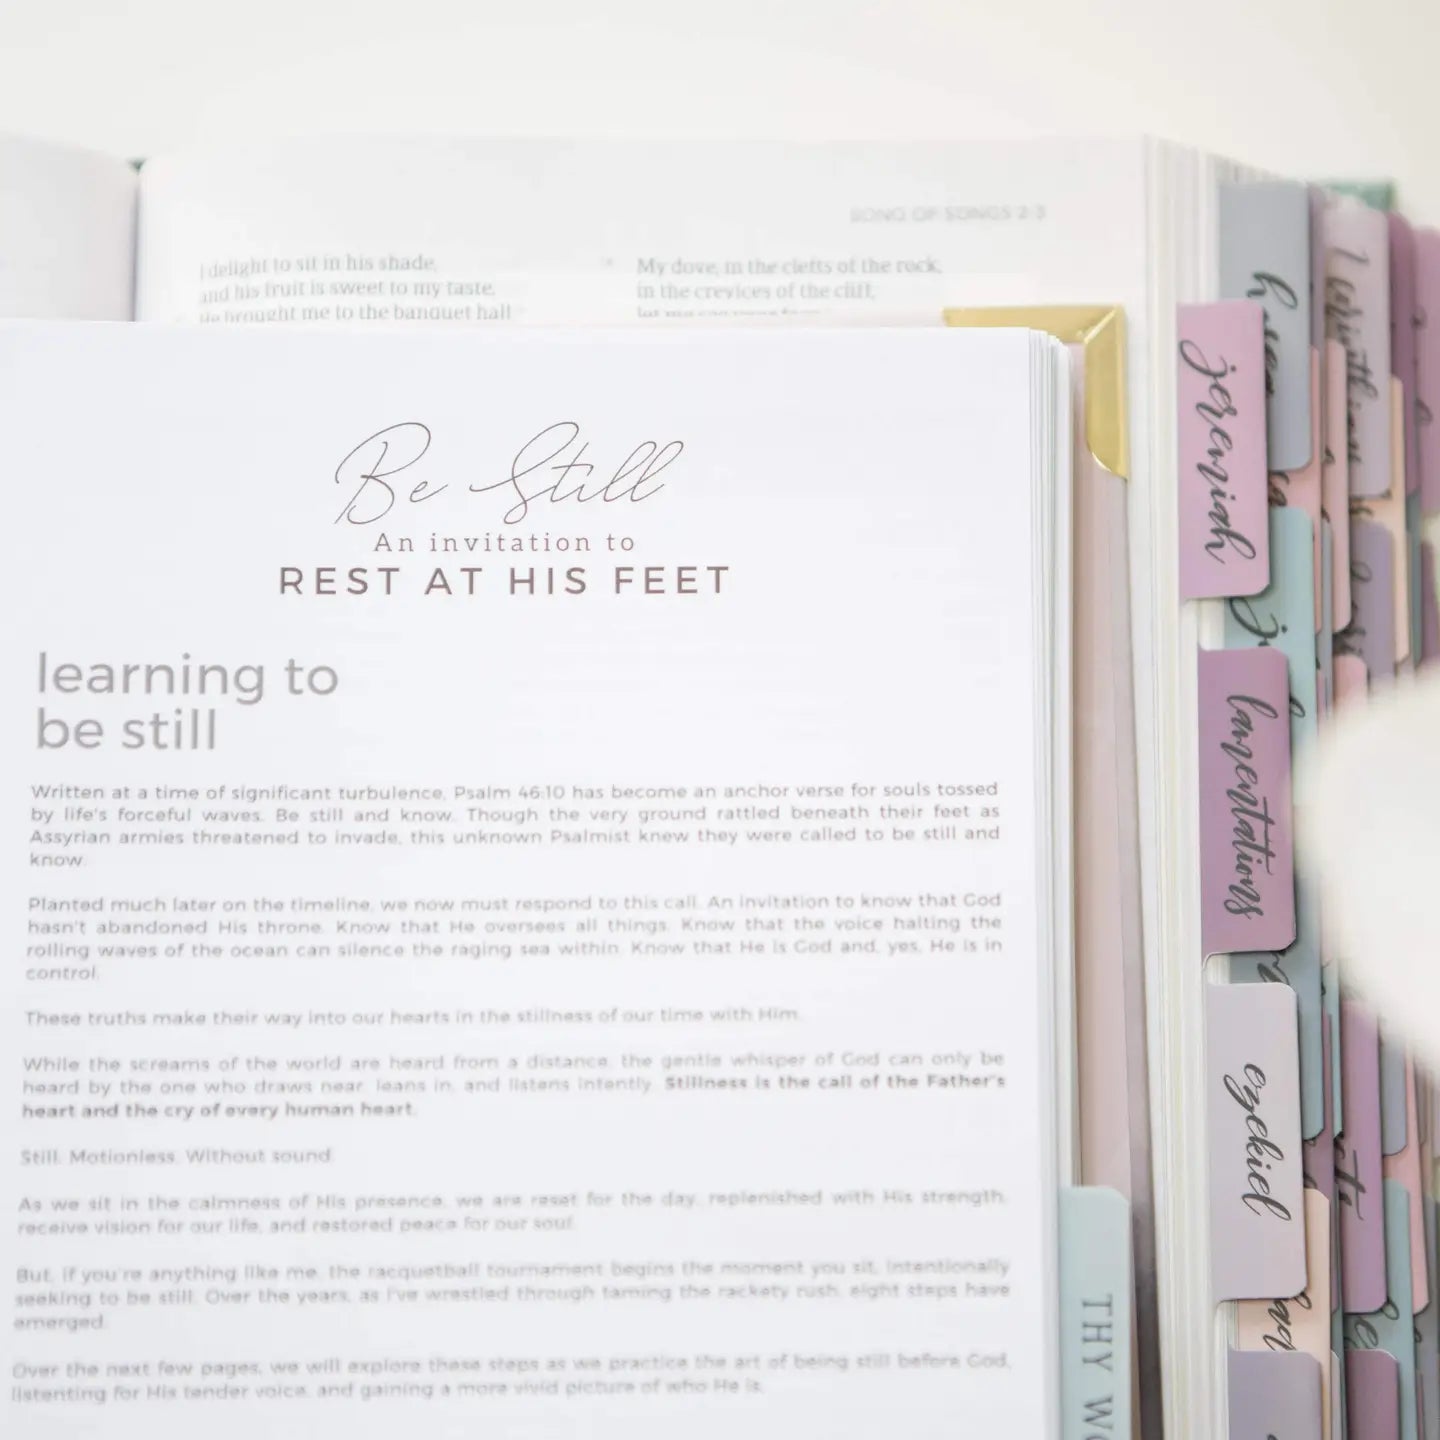 SONG OF SONGS 2-3
I delight to sit in his shade,
and his fruit is sweet to my taste.
He brought me to the banquet hall
My dove, in the clefts of the rock,
in the crevices of the cliff,
let me see your
Be Still
An invitation to
REST AT HIS FEET
learning to
be still
Written at a time of significant turbulence, Psalm 46:10 has become an anchor verse for souls tossed
by life's forceful waves. Be still and know. Though the very ground rattled beneath their feet as
Assyrian armies threatened to invade, this unknown Psalmist knew they were called to be still and
know.
Planted much later on the timeline, we now must respond to this call. An invitation to know that God
hasn't abandoned His throne. Know that He oversees all things. Know that the voice halting the
rolling waves of the ocean can silence the raging sea within. Know that He is God and, yes, He is in
control.
These truths make their way into our hearts in the stillness of our time with Him.
While the screams of the world are heard from a distance, the gentle whisper of God can only be
heard by the one who draws near, leans in, and listens intently. Stillness is the call of the Father's
heart and the cry of every human heart.
Still. Motionless. Without sound.
As we sit in the calmness of His presence, we are reset for the day, replenished with His strength,
receive vision for our life, and restored peace for our soul.
But, if you're anything like me, the racquetball tournament begins the moment you sit, intentionally
seeking to be still. Over the years, as I've wrestled through taming the rackety rush, eight steps have
emerged.
Over the next few pages, we will explore these steps as we practice the art of being still before God,
listenting for His tender voice, and gaining a more vivid picture of who He is.
jeremiah
lamentations
ezekiel
THY WO